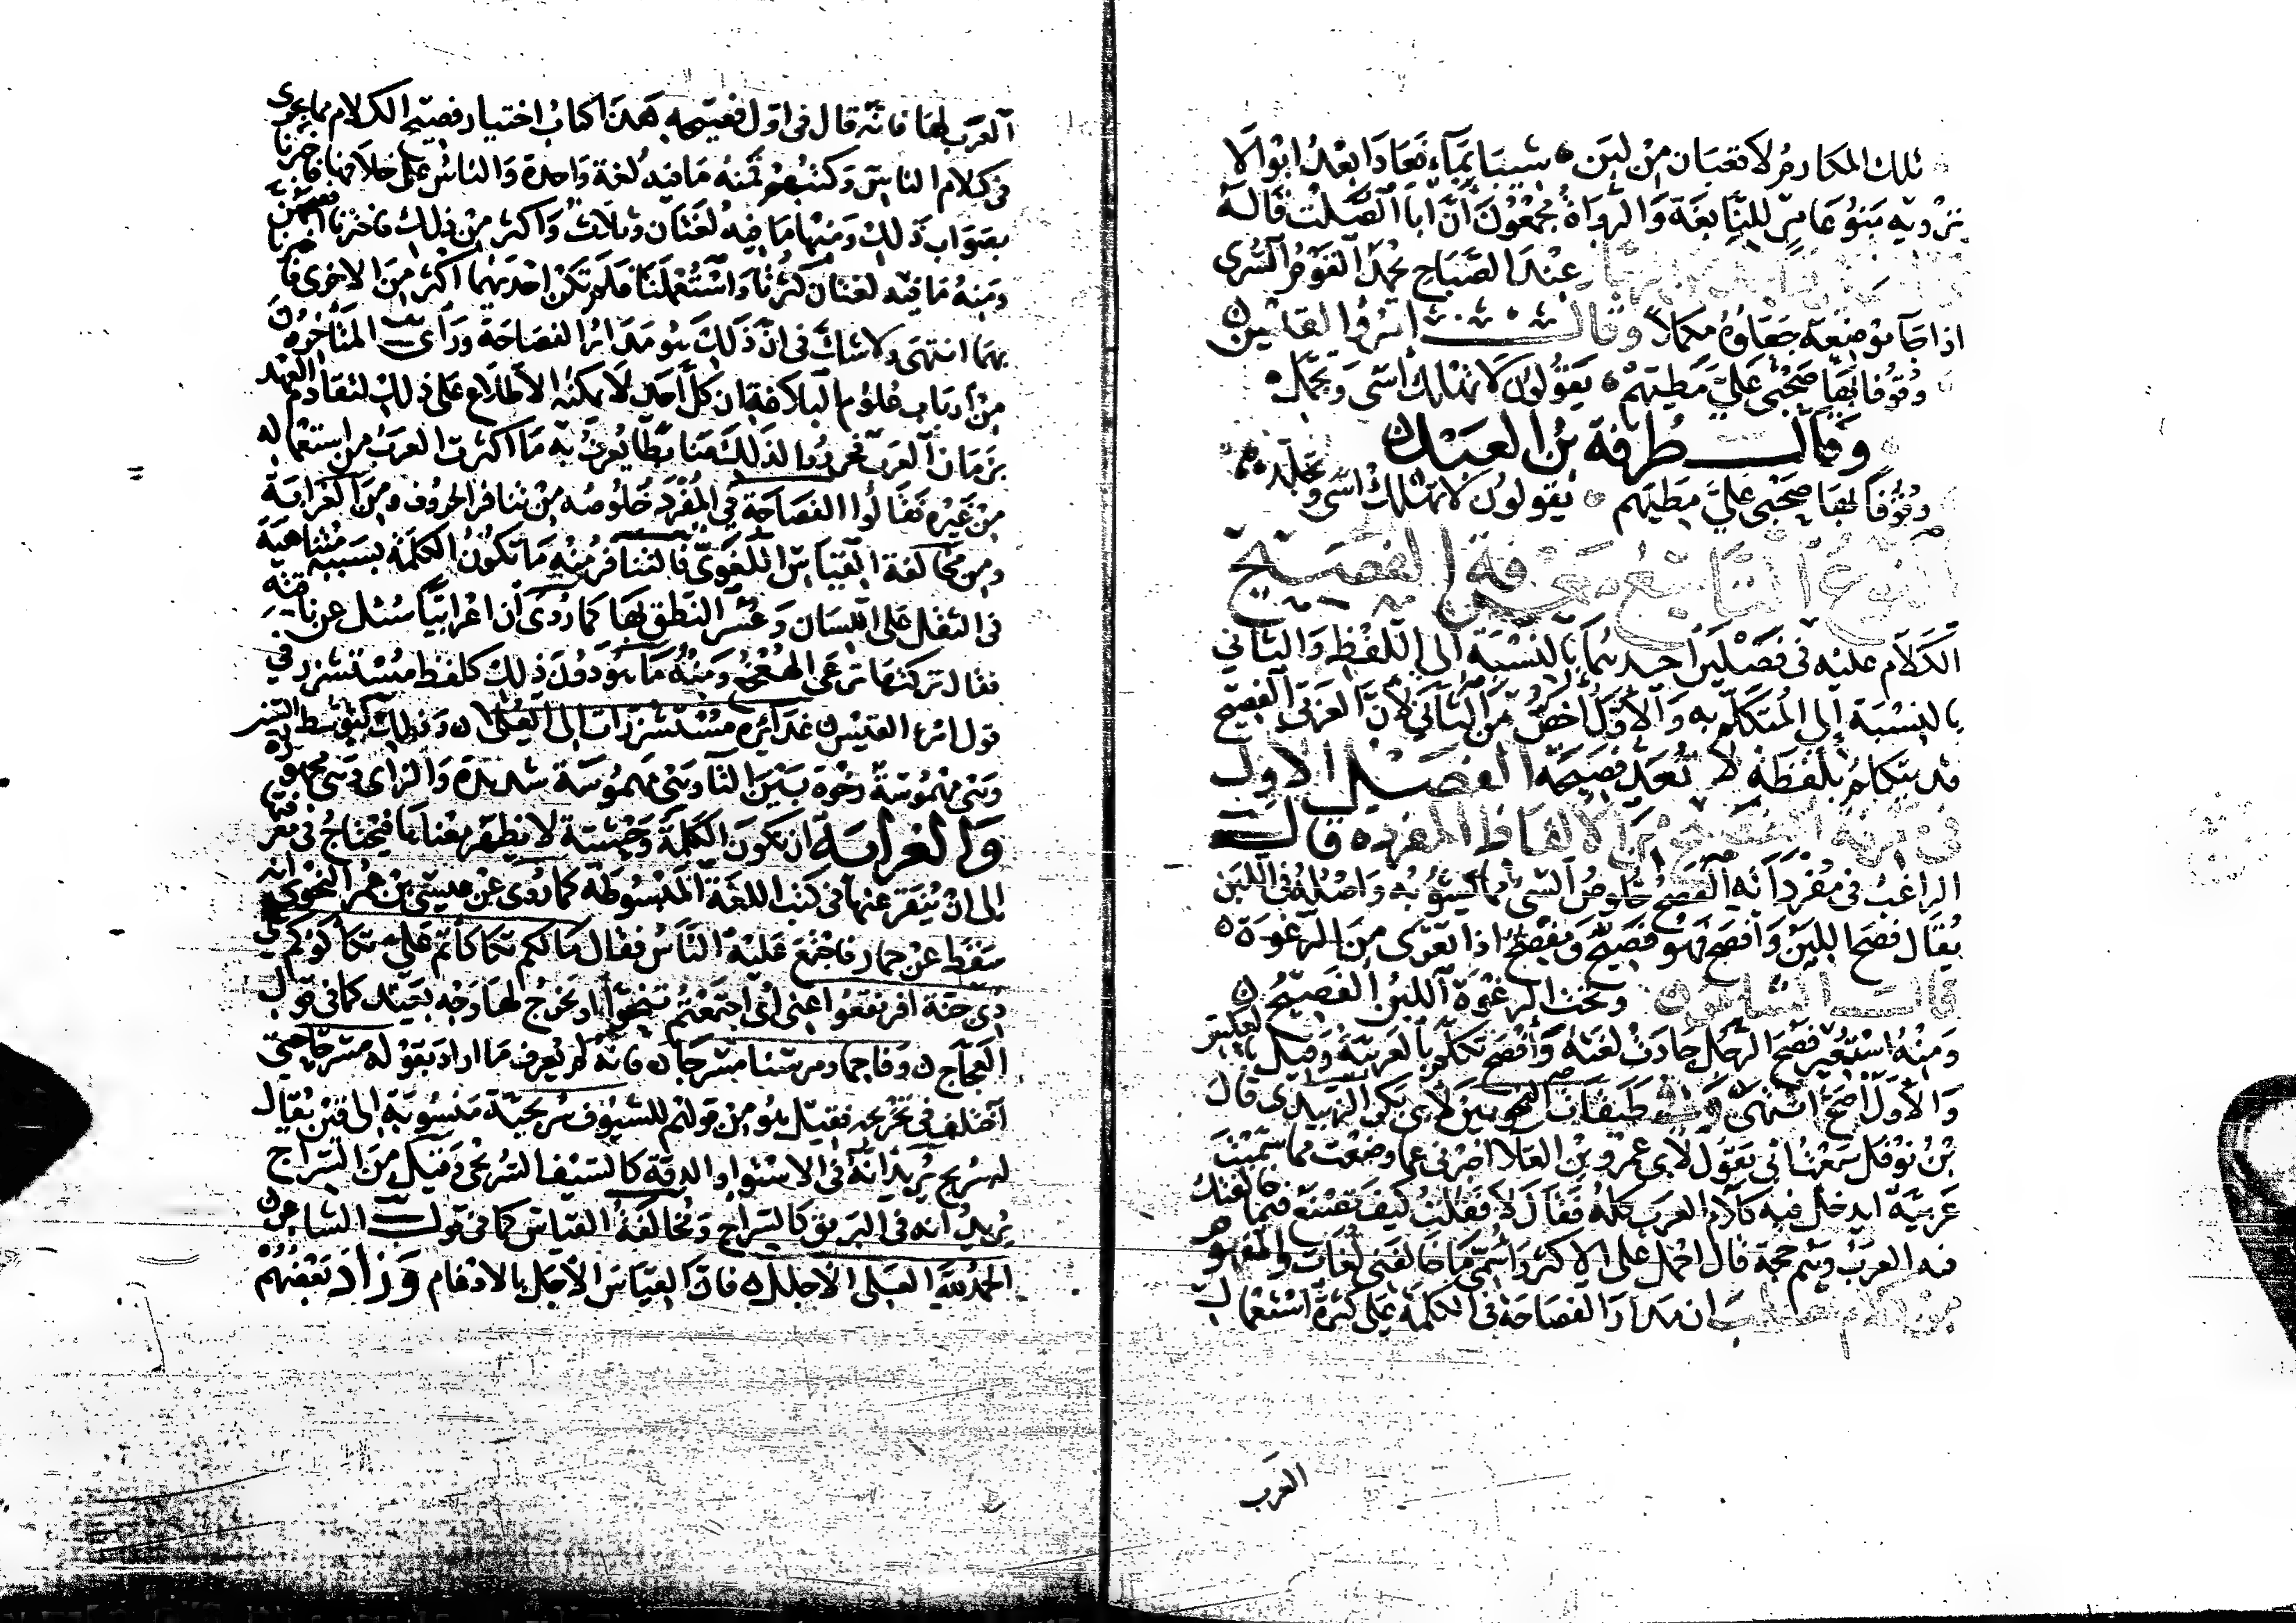 تلك المكارم لا قعبان من لبن ه شيبا بماء فعادا بعد ابوالا
يرويه بنو عامر للنابغة والرواة مجمعون أن ابا الصلت قاله
عند الصباح يحمد القوم السرى
اذا جا موضعه جعلوه مكملا وقال امرؤ القيس ن
وقوفا بها صحبي علي مطيهم ه يقولون لا تهلك أسى وتجمل ه
وقال طرفة بن العبد
وقوفا بها صحبي علي مطيهم ه يقولون لا تهلك اسى وتجلد
النوع التاسع معرفة الفصيح
الكلام عليه في فصلين احدهما بالنسبة الى اللفظ والثاني
بالنسبة إلى المتكلم به والأول أخص من الثاني لأن العربي الفصيح
قد يتكلم بلفظة لا تعد فصيحة الفصل الاول
في معرفة الفصيح من الالفاظ المفرده قال
الراغب في مفرداته الفصح خلوص الشي مما يشوبه واصله في اللبن
يقال فصح اللبن وافصح فهو فصيح ومفصح اذا تعرى من الرغوة ه
قال الشاعر ن وتحت الرغوة اللبن الفصيح ن
ومنه استعير فصح الرجل جادت لغته وأفصح تكلم بالعربية وقيل بالعكس
والأول أصح انتهى وفي طبقات النحويين لأبي بكر الزبيدي قال
بن نوفل سمعت ابي يقول لابي عمرو بن العلا اخبرني عما وضعت مما سميت
عربية ايدخل فيه كلام العرب كله فقال لا فقلت كيف تصنع فيما خالفتك
فيه العرب وهم حجة قال احمل على الاكثر وأسمي ما خالفني لغات والمفهوم
من كلام ثعلب ان مدار الفصاحة في الكلمة على كثرة استعمال
العرب
العرب لها فانه قال في اول فصيحه هذا كتاب اختيار فصيح الكلام مما يجري
في كلام الناس وكتبهم فمنه ما فيه لغة واحدة والناس على خلافها فاخبرنا
بصواب ذلك ومنها ما فيه لغتان وثلاث واكثر من ذلك فاخترنا افصحهن
ومنه ما فيه لغتان كثرتا واستعملتا فلم تكن احديهما اكثر من الاخرى فاخبرنا
بهما انتهى ولا شك في ان ذلك هو مدار الفصاحة ورأى المتأخرون
من أرباب علوم البلاغة ان كل أحد لا يمكنه الاطلاع على ذلك لتقادم العهد
بزمان العرب فحرروا لذلك ضابطا يعرف به ما اكثرت العرب من استعماله
من غيره فقالوا الفصاحة في المفرد خلوصه من تنافر الحروف ومن الغرابة
ومن مخالفة القياس اللغوي فالتنافر منه ما تكون الكلمة بسببه متناهية
في الثقل على اللسان وعسر النطق بها كما روى أن اعرابيا سئل عن ناقته
فقال تركتها ترعى الهعخع ومنه ما هو دون ذلك كلفظ مستشزر في
قول امرء القيس ن غدائره مستشزرات الى العلى ن وذلك لتوسط الشين
وهي مهموسة رخوة بين التا وهي مهموسة شديدة والزاي وهي مجهورة
والغرابة ان تكون الكلمة وحشية لا يظهر معناها فيحتاج في معرفتها
إلى ان ينقر عنها في كتب اللغة المبسوطة كما روى عن عيسى بن عمر النحوي انه
سقط عن حمار فاجتمع عليه الناس فقال مالكم تكأكأتم علي تكأكؤكم على
ذي جنة افرنقعوا عني اى اجتمعتم تنحوا او يخرج لها وجه بعيد كما في قول
العجاج ن وفاحما ومرسنا مسرجا ن فانه لم يعرف ما اراد بقوله مسرجا حتى
اختلف في تخريجه فقيل هو من قولهم للسيوف سريجية منسوبة إلى قين يقال
له سريج يريد انه في الاستوا والدقة كالسيف السريجي وقيل من السراج
يريد انه في البريق كالسراج ومخالفة القياس كما في قول الشاعر ن
الحمد لله العلى الاجلل ن فان القياس الاجل بالادغام وزاد بعضهم